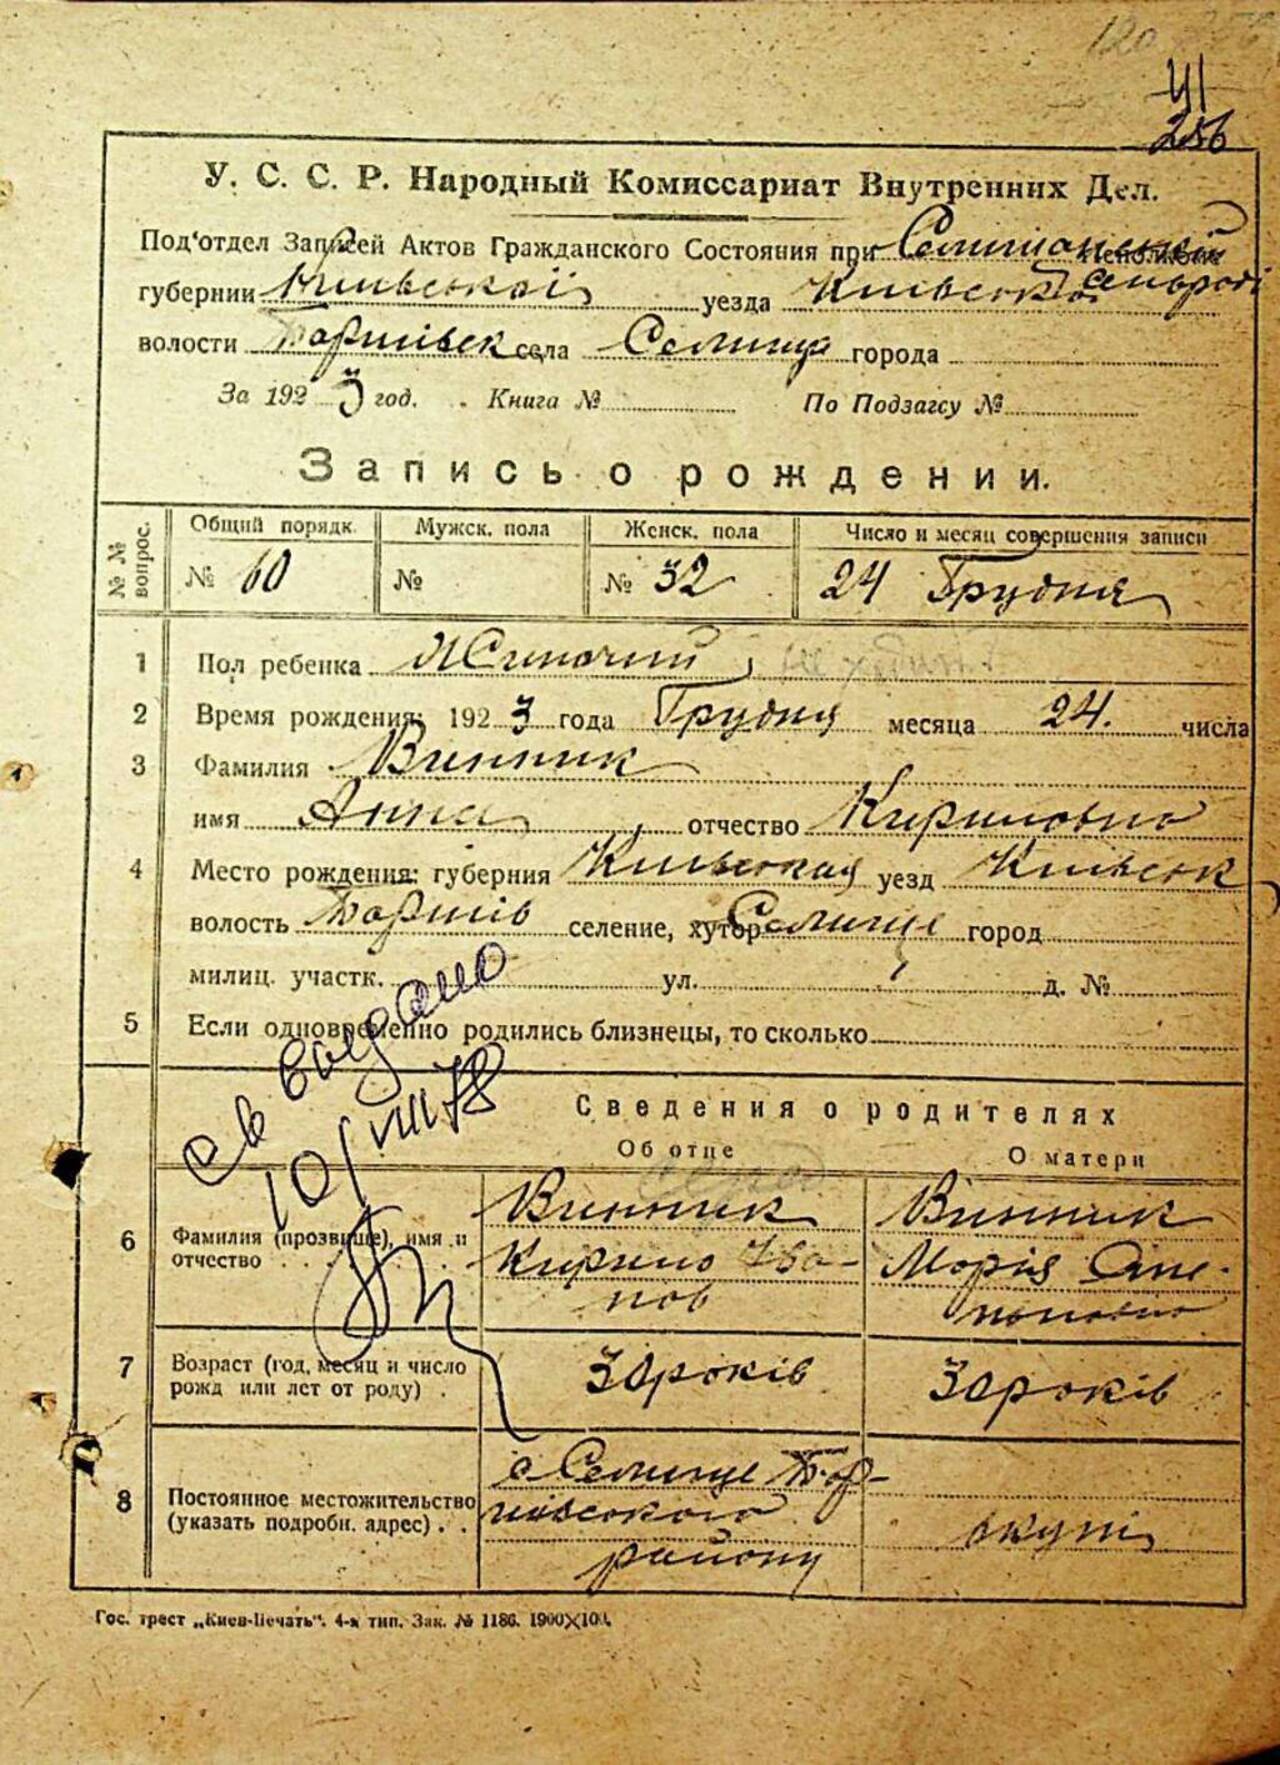 120
41
256
У. С. С. Р. Народный Комиссариат Внутренних Дел.
Под'отдел Записей Актов Гражданского Состояния при Селищанській Исполкоме
губернии Київської уезда Київсько Сельраді
волости Баришівск села Селище города
За 1923 год. Книга № По Подзагсу №
Запись о рождении.
№ № вопрос. Общий порядк. Мужск. пола Женск. пола Число и месяц совершения записи
№ 60 № № 32 24 Грудня
1 Пол ребенка Жиночий
2 Время рождения: 1923 года Грудня месяца 24. числа
3 Фамилия Винник
имя Анна отчество Кириловна
4 Место рождения: губерния Київская уезд Київськ
волость Баришів селение, хутор Селище город
милиц. участк. ул. д. №
5 Если одновременно родились близнецы, то сколько
св выдано
10/VIII 78
Сведения о родителях
Об отце О матери
6 Фамилия (прозвище), имя и отчество . . . Винник Кирило Іва-нов Винник Марія Сте-пановна
7 Возраст (год, месяц и число рожд или лет от роду) . 30 років 30 років
8 Постоянное местожительство (указать подробн. адрес) . . с Селище Бар-шівського району вкупі
Гос. трест „Киев-Печать“. 4-я тип. Зак. № 1186. 1900×100.